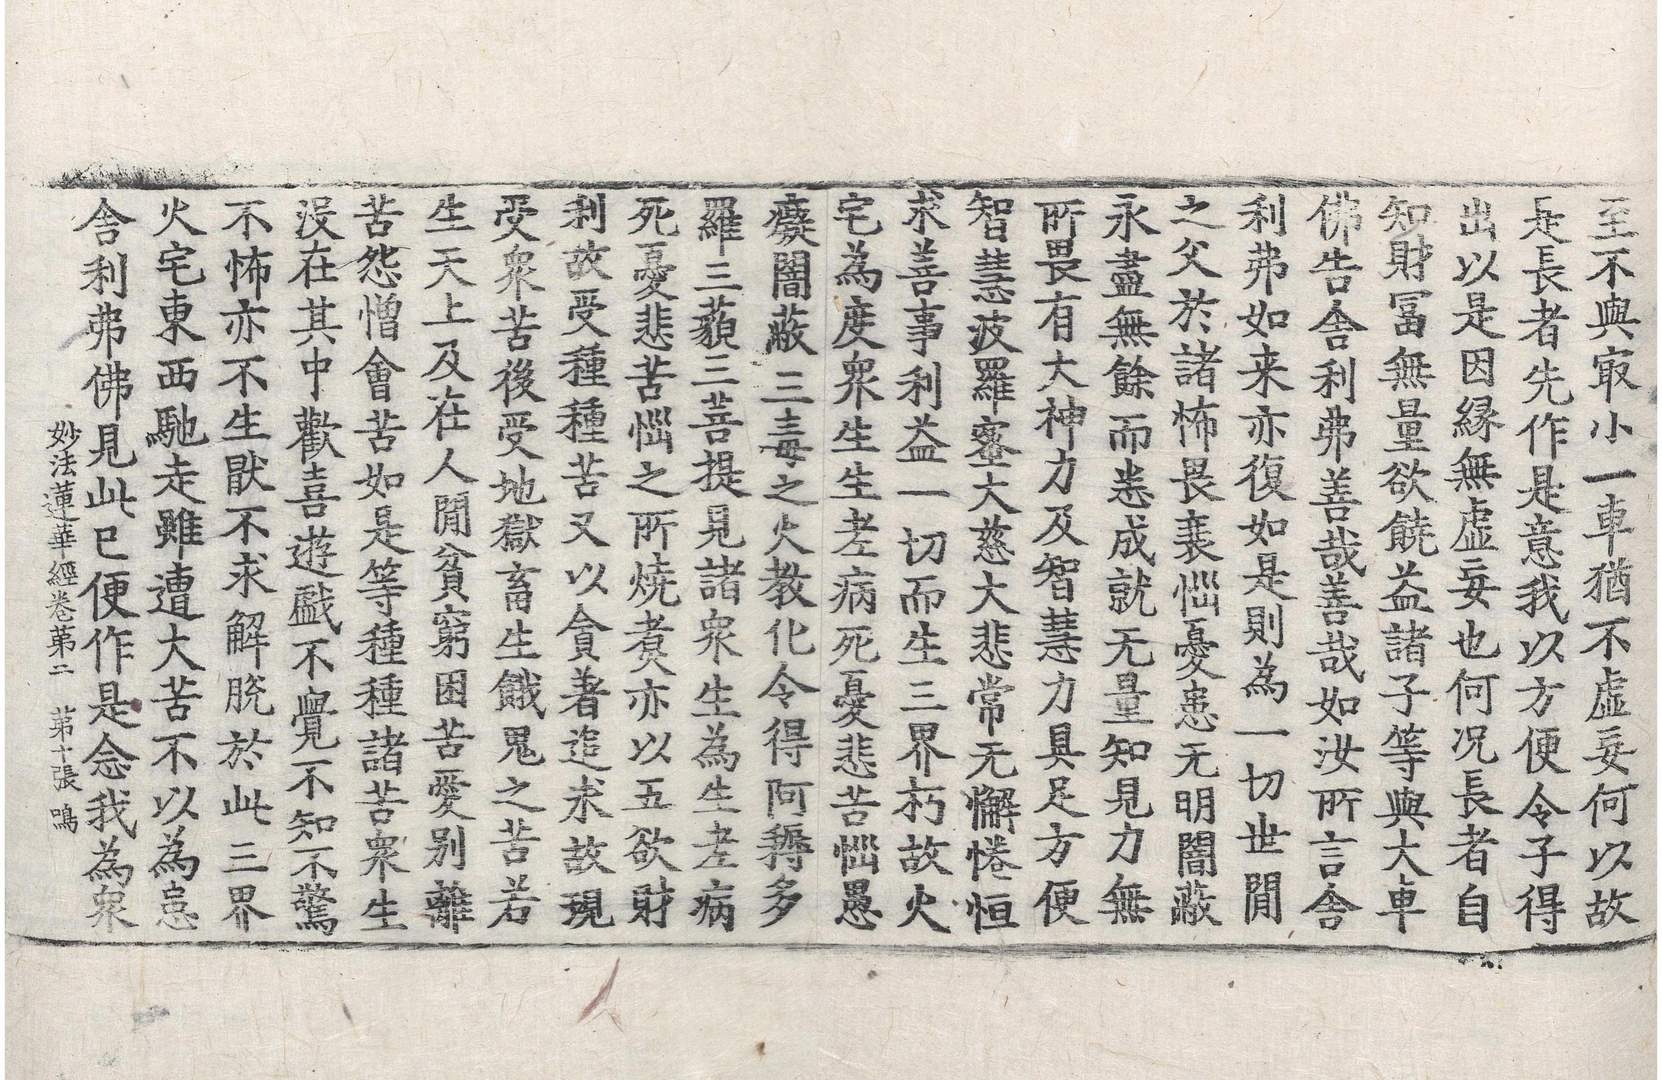 至不與冣小一車猶不虛妄何以故
是長者先作是意我以方便令子得
出以是因緣無虛妄也何況長者自
知財冨無量欲饒益諸子等與大車
佛告舎利弗善哉善哉如汝所言舎
利弗如来亦復如是則為一切世閒
之父於諸怖畏衰惱憂患无明闇蔽
永盡無餘而悉成就无量知見力無
所畏有大神力及智慧力具足方便
智慧波羅蜜大慈大悲常无懈惓恒
求善事利益一切而生三界朽故火
宅為度衆生生老病死憂悲苦惱愚
癡闇蔽三毒之火教化令得阿耨多
羅三藐三菩提見諸衆生為生老病
死憂悲苦惱之所燒煑亦以五欲財
利故受種種苦又以貪著追求故現
受衆苦後受地獄畜生餓鬼之苦若
生天上及在人閒貧窮困苦愛別離
苦怨憎會苦如是等種種諸苦衆生
没在其中歡喜遊戱不覺不知不驚
不怖亦不生猒不求解脫於此三界
火宅東西馳走雖遭大苦不以為患
舎利弗佛見此已便作是念我為衆
妙法蓮華經卷苐二 苐十張 鳴